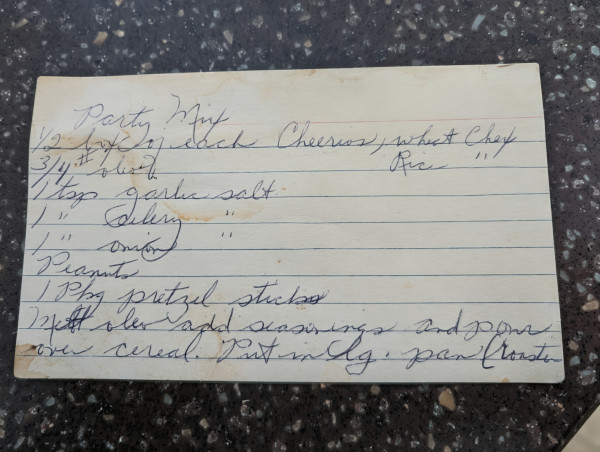 Party Mix
1/2 box of each Cheerios, wheat Chex
3/4 # oleo Ric "
1 tsp garlic salt
1 " Celery "
1 " onion "
Peanuts
1 Pkg pretzel sticks
Melt oleo add seasonings and pour
over cereal. Put in lg. pan (roaster